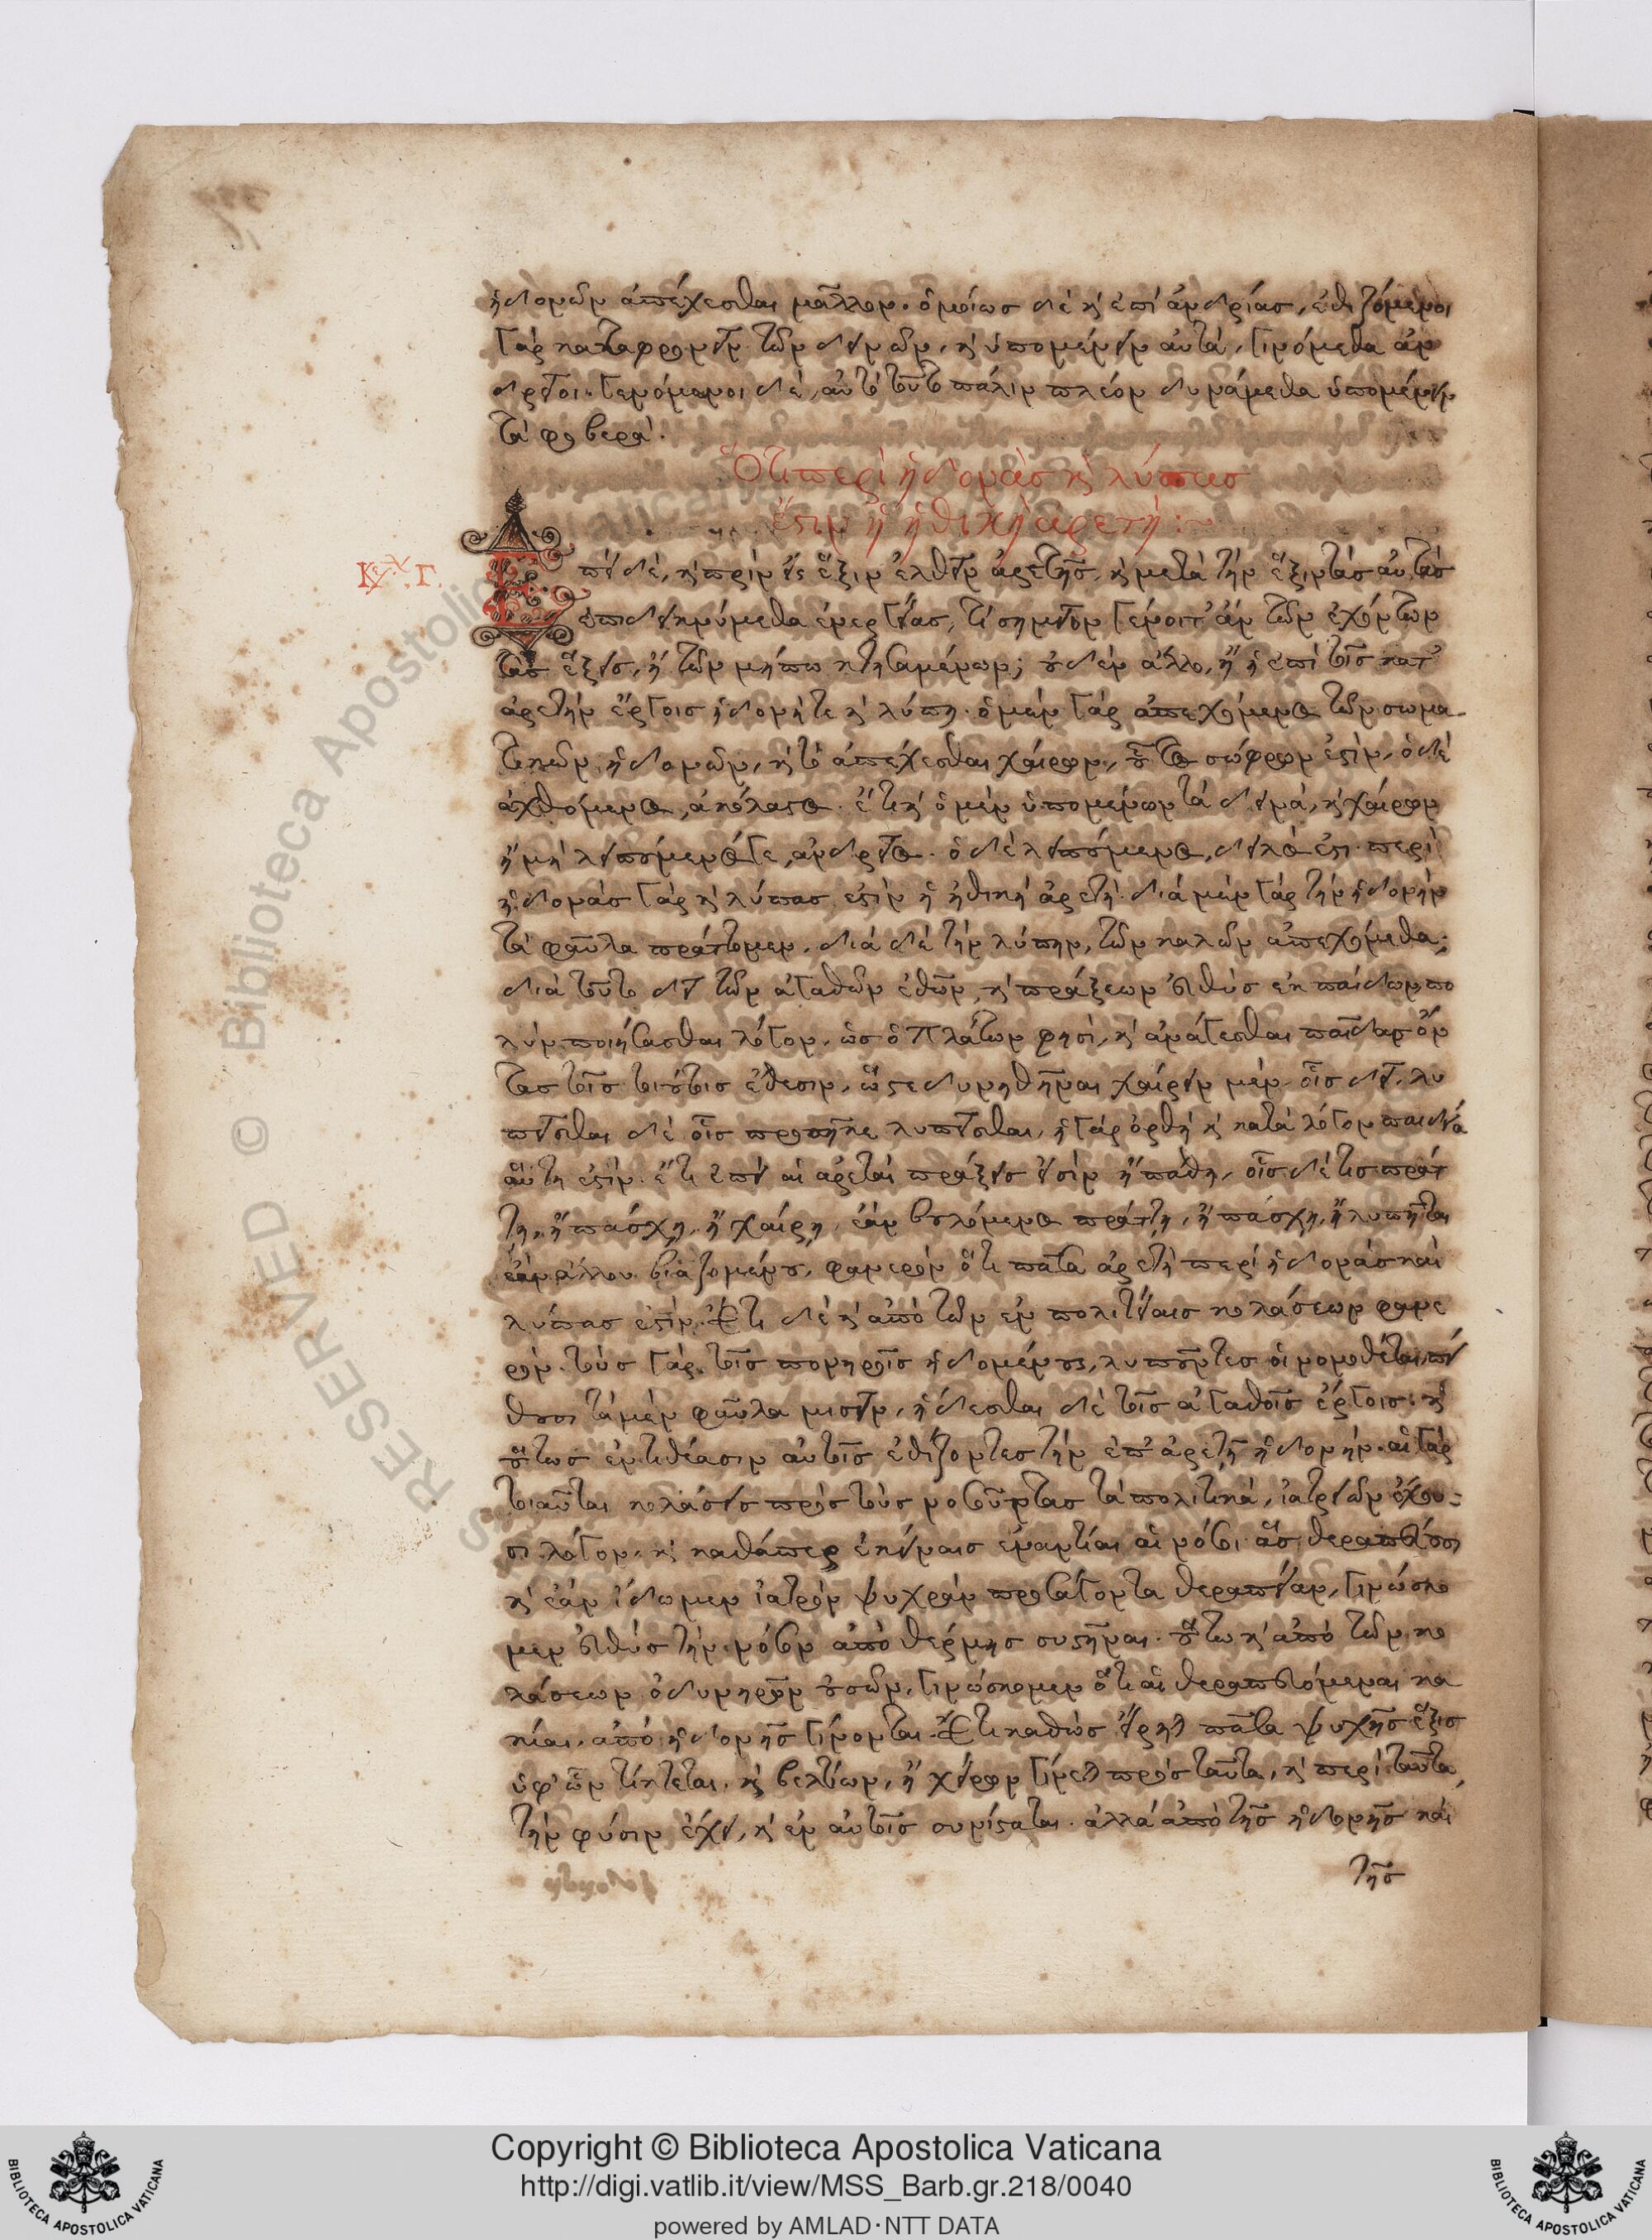 ἡδονῶν ἀπέχεσθαι μᾶλλον. ὁμοίως δὲ καὶ ἐπὶ ἀνδρίας, ἐθιζόμενοι
γὰρ καταφρονεῖν τῶν δεινῶν, καὶ ὑπομένειν αὐτά, γινόμεθα ἀν
δρεῖοι. γενόμενοι δέ, αὐτὸ τοῦτο πάλιν πλέον δυνάμεθα ὑπομένειν
τὰ φοβερά.
Ὅτι περὶ ἡδονὰς καὶ λύπας
ἔστιν ἡ ἠθικὴ ἀρετή:~
Κεφ. Γ.
Ἐπεὶ δέ, καὶ πρίν γε ἕξιν ἐλθεῖν ἀρετῆς, καὶ μετὰ τὴν ἕξιν τὰς αὐτὰς
ἐπιδεικνύμεθα ἐνεργείας, τί σημεῖον γένοιτ' ἂν τῶν ἐχόντων
τὰς ἕξεις, ἢ τῶν μήπω κτησαμένων; οὐδὲν ἄλλο, ἢ ἡ ἐπὶ τοῖς κατ'
ἀρετὴν ἔργοις ἡδονή τε καὶ λύπη. ὁ μὲν γὰρ ἀπεχόμενος τῶν σωμα
τικῶν ἡδονῶν, καὶ τῷ ἀπέχεσθαι χαίρων, οὗτος σώφρων ἐστίν, ὁ δὲ
ἀχθόμενος, ἀκόλαστος. ἔτι καὶ ὁ μὲν ὑπομένων τὰ δεινά, καὶ χαίρων
ἢ μὴ λυπούμενός γε, ἀνδρεῖος. ὁ δὲ λυπούμενος, δειλός ἐστι. περὶ
ἡδονὰς γὰρ καὶ λύπας ἐστὶν ἡ ἠθικὴ ἀρετή. διὰ μὲν γὰρ τὴν ἡδονὴν
τὰ φαῦλα πράττομεν, διὰ δὲ τὴν λύπην, τῶν καλῶν ἀπεχόμεθα.
διὰ τοῦτο δεῖ τῶν ἀγαθῶν ἐθῶν, καὶ πράξεων εὐθὺς ἐκ παίδων πο
λὺν ποιήσασθαι λόγον, ὡς ὁ Πλάτων φησί, καὶ ἀνάγεσθαι παῖδας ὄν
τας τοῖς τοιούτοις ἔθεσιν, ὥστε δυνηθῆναι χαίρειν μὲν οἷς δεῖ, λυ
πεῖσθαι δὲ οἷς προσῆκε λυπεῖσθαι, ἡ γὰρ ὀρθὴ καὶ κατὰ λόγον παιδεία
αὕτη ἐστίν. ἔτι ἐπεὶ αἱ ἀρεταὶ πράξεις εἰσὶν ἢ πάθη, οἷς δέ τις πράτ
τῃ, ἢ πάσχῃ, ἢ χαίρῃ, ἐὰν βουλόμενος πράττῃ, ἢ πάσχῃ, ἢ λυπῆται
ἐὰν ἄλλου βιαζομένου, φανερὸν ὅτι πᾶσα ἀρετὴ περὶ ἡδονὰς καὶ
λύπας ἐστίν. Ἔτι δὲ καὶ ἀπὸ τῶν ἐν πολιτείαις κολάσεων φανε
ρόν. τοὺς γὰρ τοῖς πονηροῖς ἡδομένους, λυποῦντες οἱ νομοθέται πεί
θουσι τὰ μὲν φαῦλα μισεῖν, ἥδεσθαι δὲ τοῖς ἀγαθοῖς ἔργοις. καὶ
οὕτως ἐντιθέασιν αὐτοῖς ἐθίζοντες τὴν ἐπ' ἀρετῇ ἡδονήν. αἱ γὰρ
τοιαῦται κολάσεις πρὸς τοὺς νοσοῦντας τὰ πολιτικά, ἰατρειῶν ἔχου
σι λόγον, καὶ καθάπερ ἐκείναις ἐναντίαι αἱ νόσοι ἃς θεραπεύουσι
καὶ ἐὰν ἴδωμεν ἰατρὸν ψυχρὰν προσάγοντα θεραπείαν, γινώσκο
μεν εὐθὺς τὴν νόσον ἀπὸ θέρμης συστῆναι. οὕτω καὶ ἀπὸ τῶν κο
λάσεων ὀδυνηρῶν οὐσῶν, γινώσκομεν ὅτι αἱ θεραπευόμεναι κα
κίαι, ἀπὸ ἡδονῆς γίνονται. Ἔτι καθὼς εἴρηται πᾶσα ψυχῆς ἕξις
ὑφ' ὧν τίκτεται, καὶ βελτίων, ἢ χείρων γίνεται πρὸς ταῦτα, καὶ περὶ ταῦτα
τὴν φύσιν ἔχει, καὶ ἐν αὐτοῖς συνίσταται. ἀλλὰ ἀπὸ τῆς ἡδονῆς καὶ
τῆς